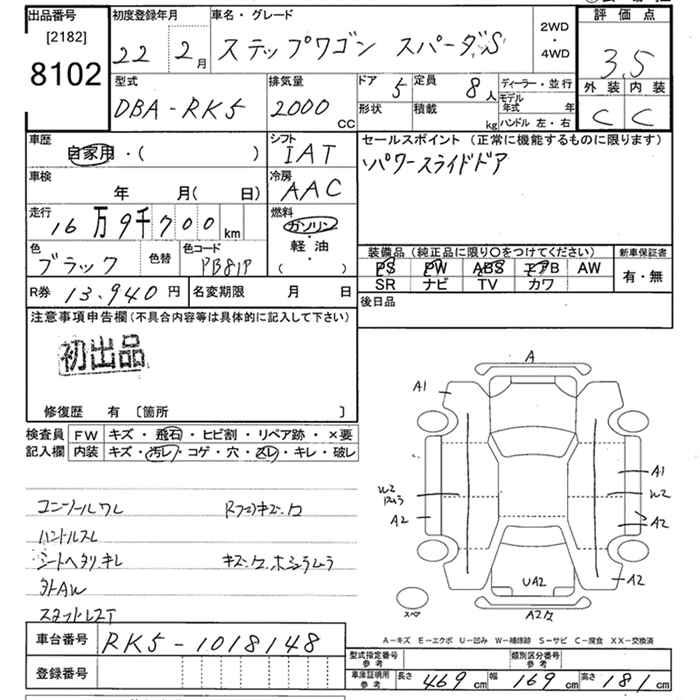 出品番号 初度登録年月 車名・グレード 評価点
[2182] 22 2月 ステップワゴン スパーダS 2WD・4WD 3.5
8102
型式 排気量 ドア 5 定員 8人 ディーラー・並行 外装 内装
DBA-RK5 2000cc 形状 積載 kg モデル年式 年 C C
ハンドル 左・右
車歴 シフト セールスポイント (正常に機能するものに限ります)
自家用・( ) IAT パワースライドドア
車検 冷房
年 月(日) AAC
走行 燃料
16万9千700km ガソリン・軽油・( )
色 色替 色コード 装備品 (純正品に限り○をつけてください) 新車保証書
ブラック PB81P PS PW ABS エアB AW 有・無
SR ナビ TV カワ
R券 13,940円 名変期限 月 日 後日品
注意事項申告欄 (不具合内容等は具体的に記入して下さい)
初出品
修復歴 有 [箇所 ]
検査員 FW キズ・飛石・ヒビ割・リペア跡・×要
記入欄 内装 キズ・汚レ・コゲ・穴・スレ・キレ・破レ
A
A1
A1
W2
W2
A2
A2
コンソールワレ
ハンドルスレ
シートヘタリ、キレ
外AW
UA2
A2
スペア
A2
A-キズ E-エクボ U-凹み W-補修跡 S-サビ C-腐食 XX-交換済
車台番号 RK5-1018148
型式指定番号 参考 類別区分番号 参考
登録番号
車庫証明用 参考 長さ 469cm 幅 169cm 高さ 181cm